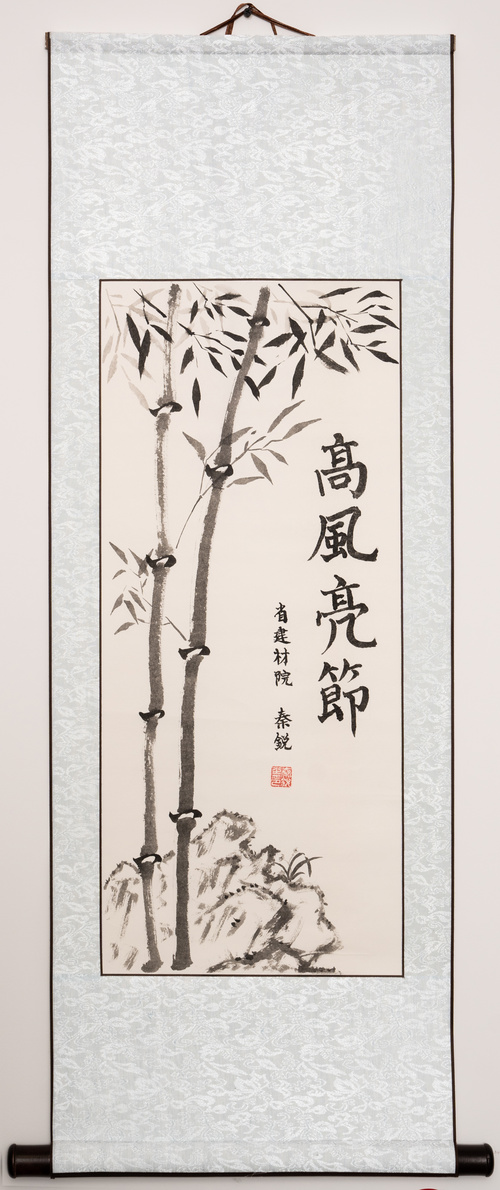 高風亮節
省建材院 秦銳